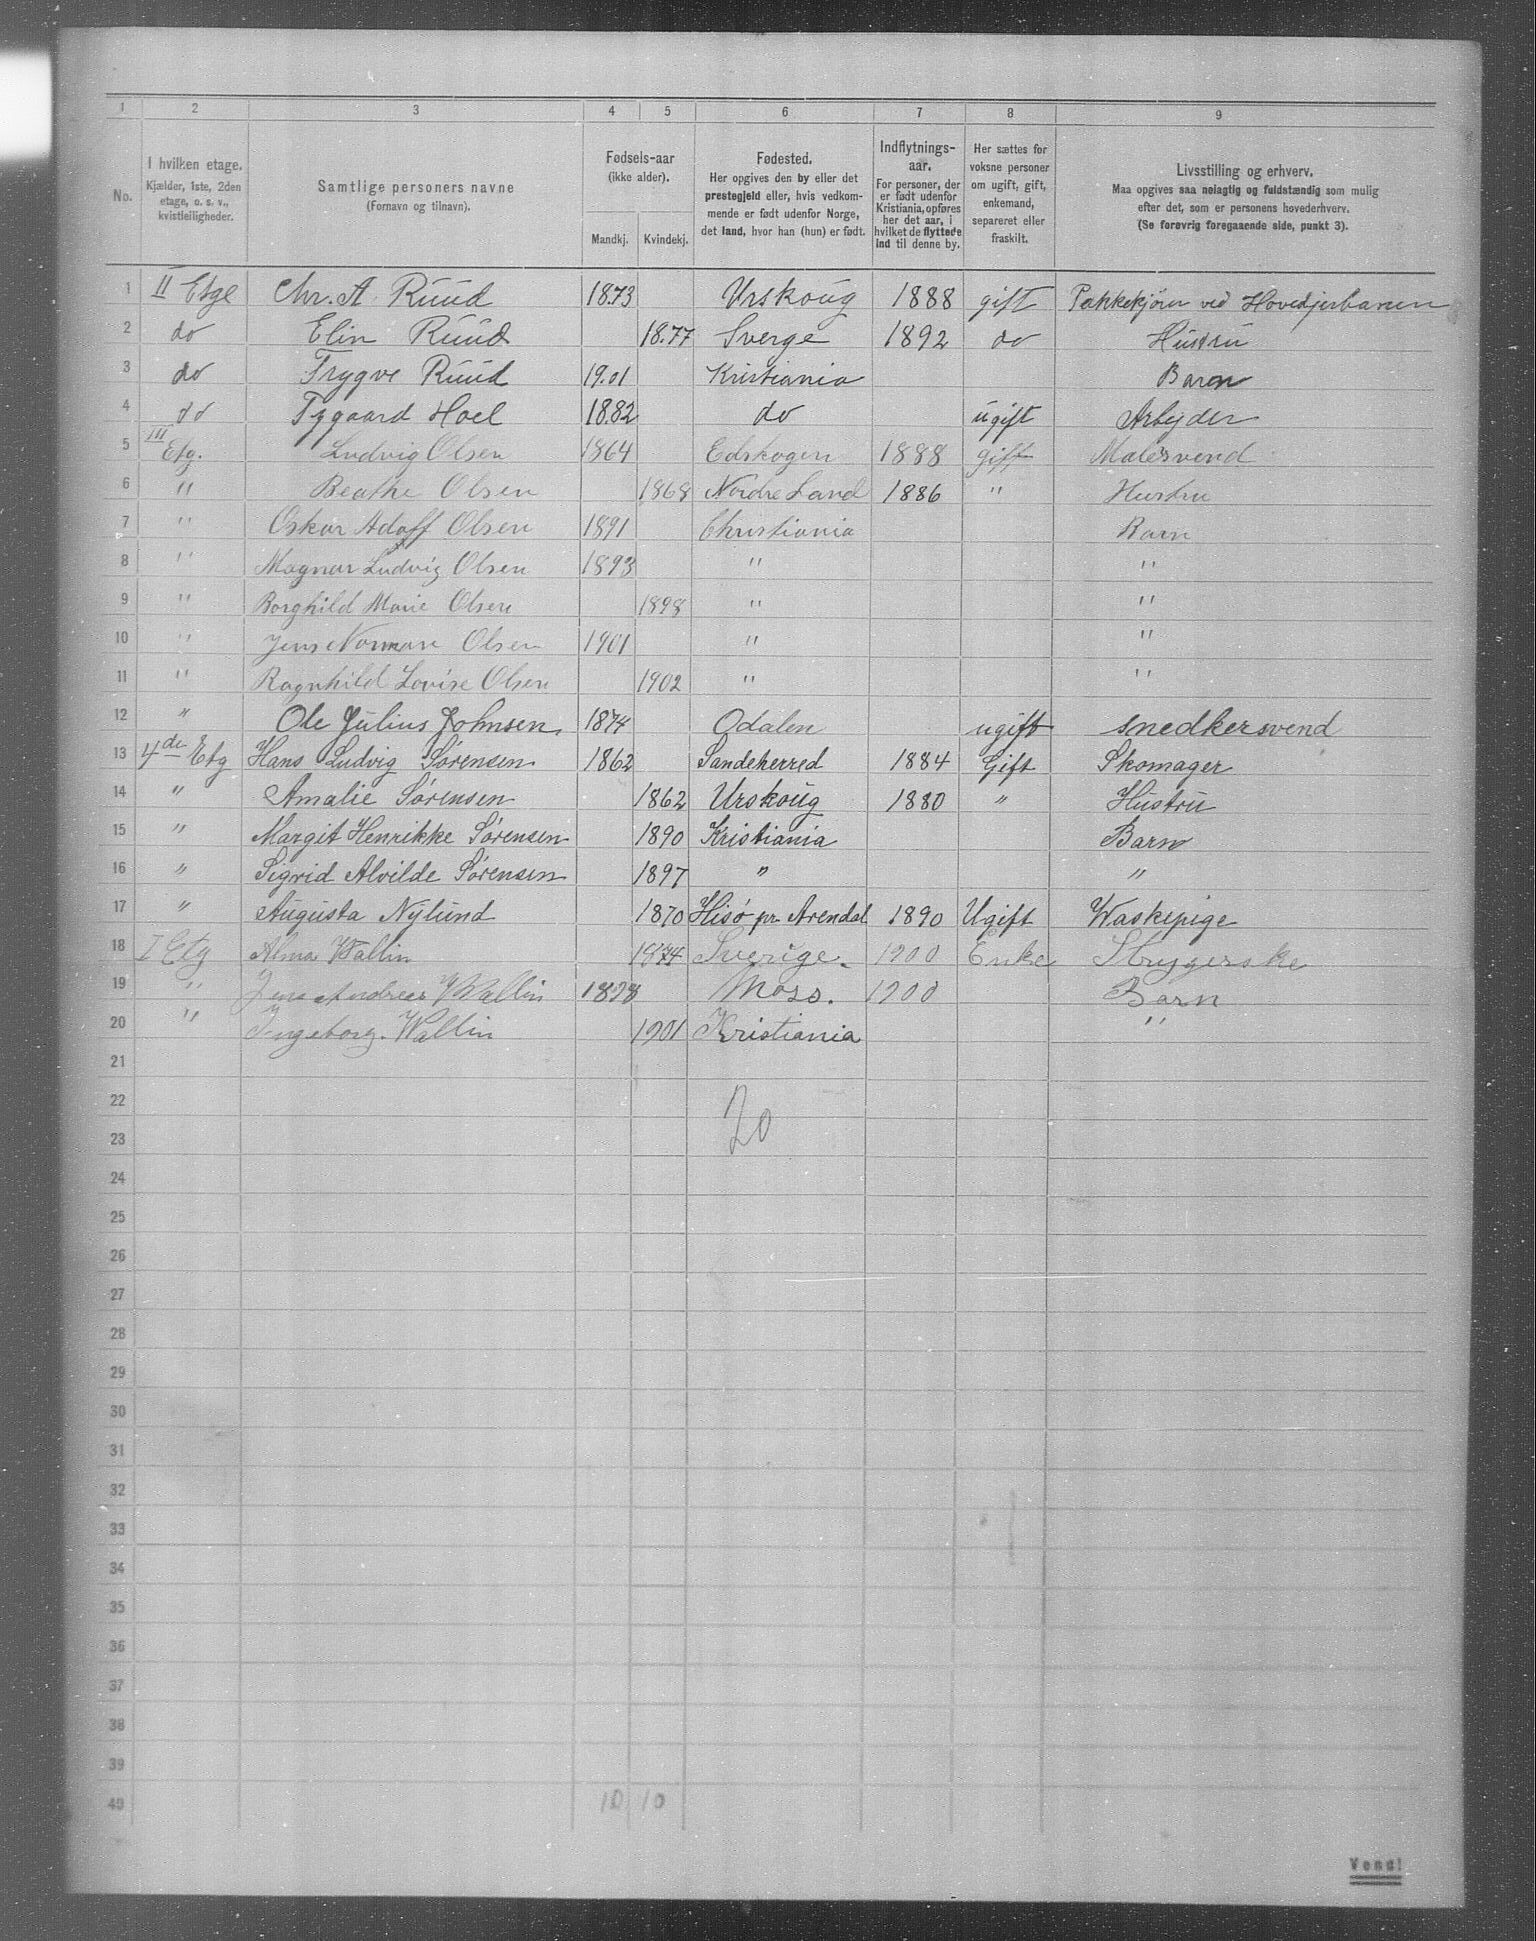 1 2 3 4 5 6 7 8 9
No. I hvilken etage. Kjælder, 1ste, 2den etage, o. s. v., kvistleiligheder. Samtlige personers navne (Fornavn og tilnavn). Fødsels-aar (ikke alder). Mandkj. Kvindekj. Fødested. Her opgives den by eller det prestegjeld eller, hvis vedkommende er født udenfor Norge, det land, hvor han (hun) er født. Indflytnings-aar. For personer, der er født udenfor Kristiania, opføres her det aar, i hvilket de flyttede ind til denne by. Her sættes for voksne personer om ugift, gift, enkemand, separeret eller fraskilt. Livsstilling og erhverv. Maa opgives saa nøiagtig og fuldstændig som mulig efter det, som er personens hovederhverv. (Se forøvrig foregaaende side, punkt 3).
1 II Etge Chr. A. Ruud 1873 Urskoug 1888 gift Pakkekjører ved Hovedjerbanen
2 do Elin Ruud 1877 Sverge 1892 do Hustru
3 do Trygve Ruud 1901 Kristiania Barn
4 do Tygaard Hoel 1882 do ugift Arbyder
5 III Etg. Ludvig Olsen 1864 Edskogen 1888 gift Malersvend
6 " Beathe Olsen 1868 Nordre Land 1886 " Hustru
7 " Oskar Adolf Olsen 1891 Christiania Barn
8 " Magnar Ludvig Olsen 1893 " "
9 " Borghild Marie Olsen 1898 " "
10 " Jens Norman Olsen 1901 " "
11 " Ragnhild Lovise Olsen 1902 " "
12 " Ole Julius Johnsen 1874 Odalen ugift snedkersvend
13 4de Etg Hans Ludvig Sørensen 1862 Sandeherred 1884 Gift Skomager
14 " Amalie Sørensen 1862 Urskoug 1880 " Hustru
15 " Margit Henrikke Sørensen 1890 Kristiania Barn
16 " Sigrid Alvilde Sørensen 1897 " "
17 " Augusta Nylund 1870 Hisø pr Arendal 1890 Ugift Waskepige
18 I Etg Alma Wallin 1874 Sverige. 1900 Enke Strygerske
19 " Jens Andreas Wallin 1898 Moss. 1900 Barn
20 " Ingeborg. Wallin 1901 Kristiania "
21
22
20
23
24
25
26
27
28
29
30
31
32
33
34
35
36
37
38
39
40 10 10
Vend!